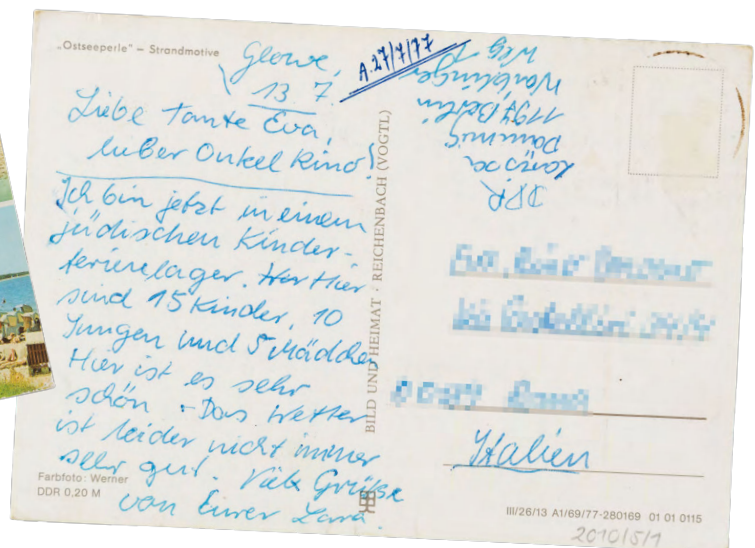 „Ostseeperle" – Strandmotive
Glowe,
13. 7.
A. 27/7/77
Liebe Tante Eva,
lieber Onkel Rino!
Ich bin jetzt in einem
jüdischen Kinder-
ferienlager. Hier
sind 15 Kinder, 10
Jungen und 5 Mädchen
Hier ist es sehr
schön. Das Wetter
ist leider nicht immer
sehr gut. Viele Grüße
von Eurer Lara.
Farbfoto: Werner
DDR 0,20 M
BILD UND HEIMAT · REICHENBACH (VOGTL)
DDR
1197 Berlin
Weg
Italien
III/26/13 A1/69/77-280169 01 01 0115
2010/5/1